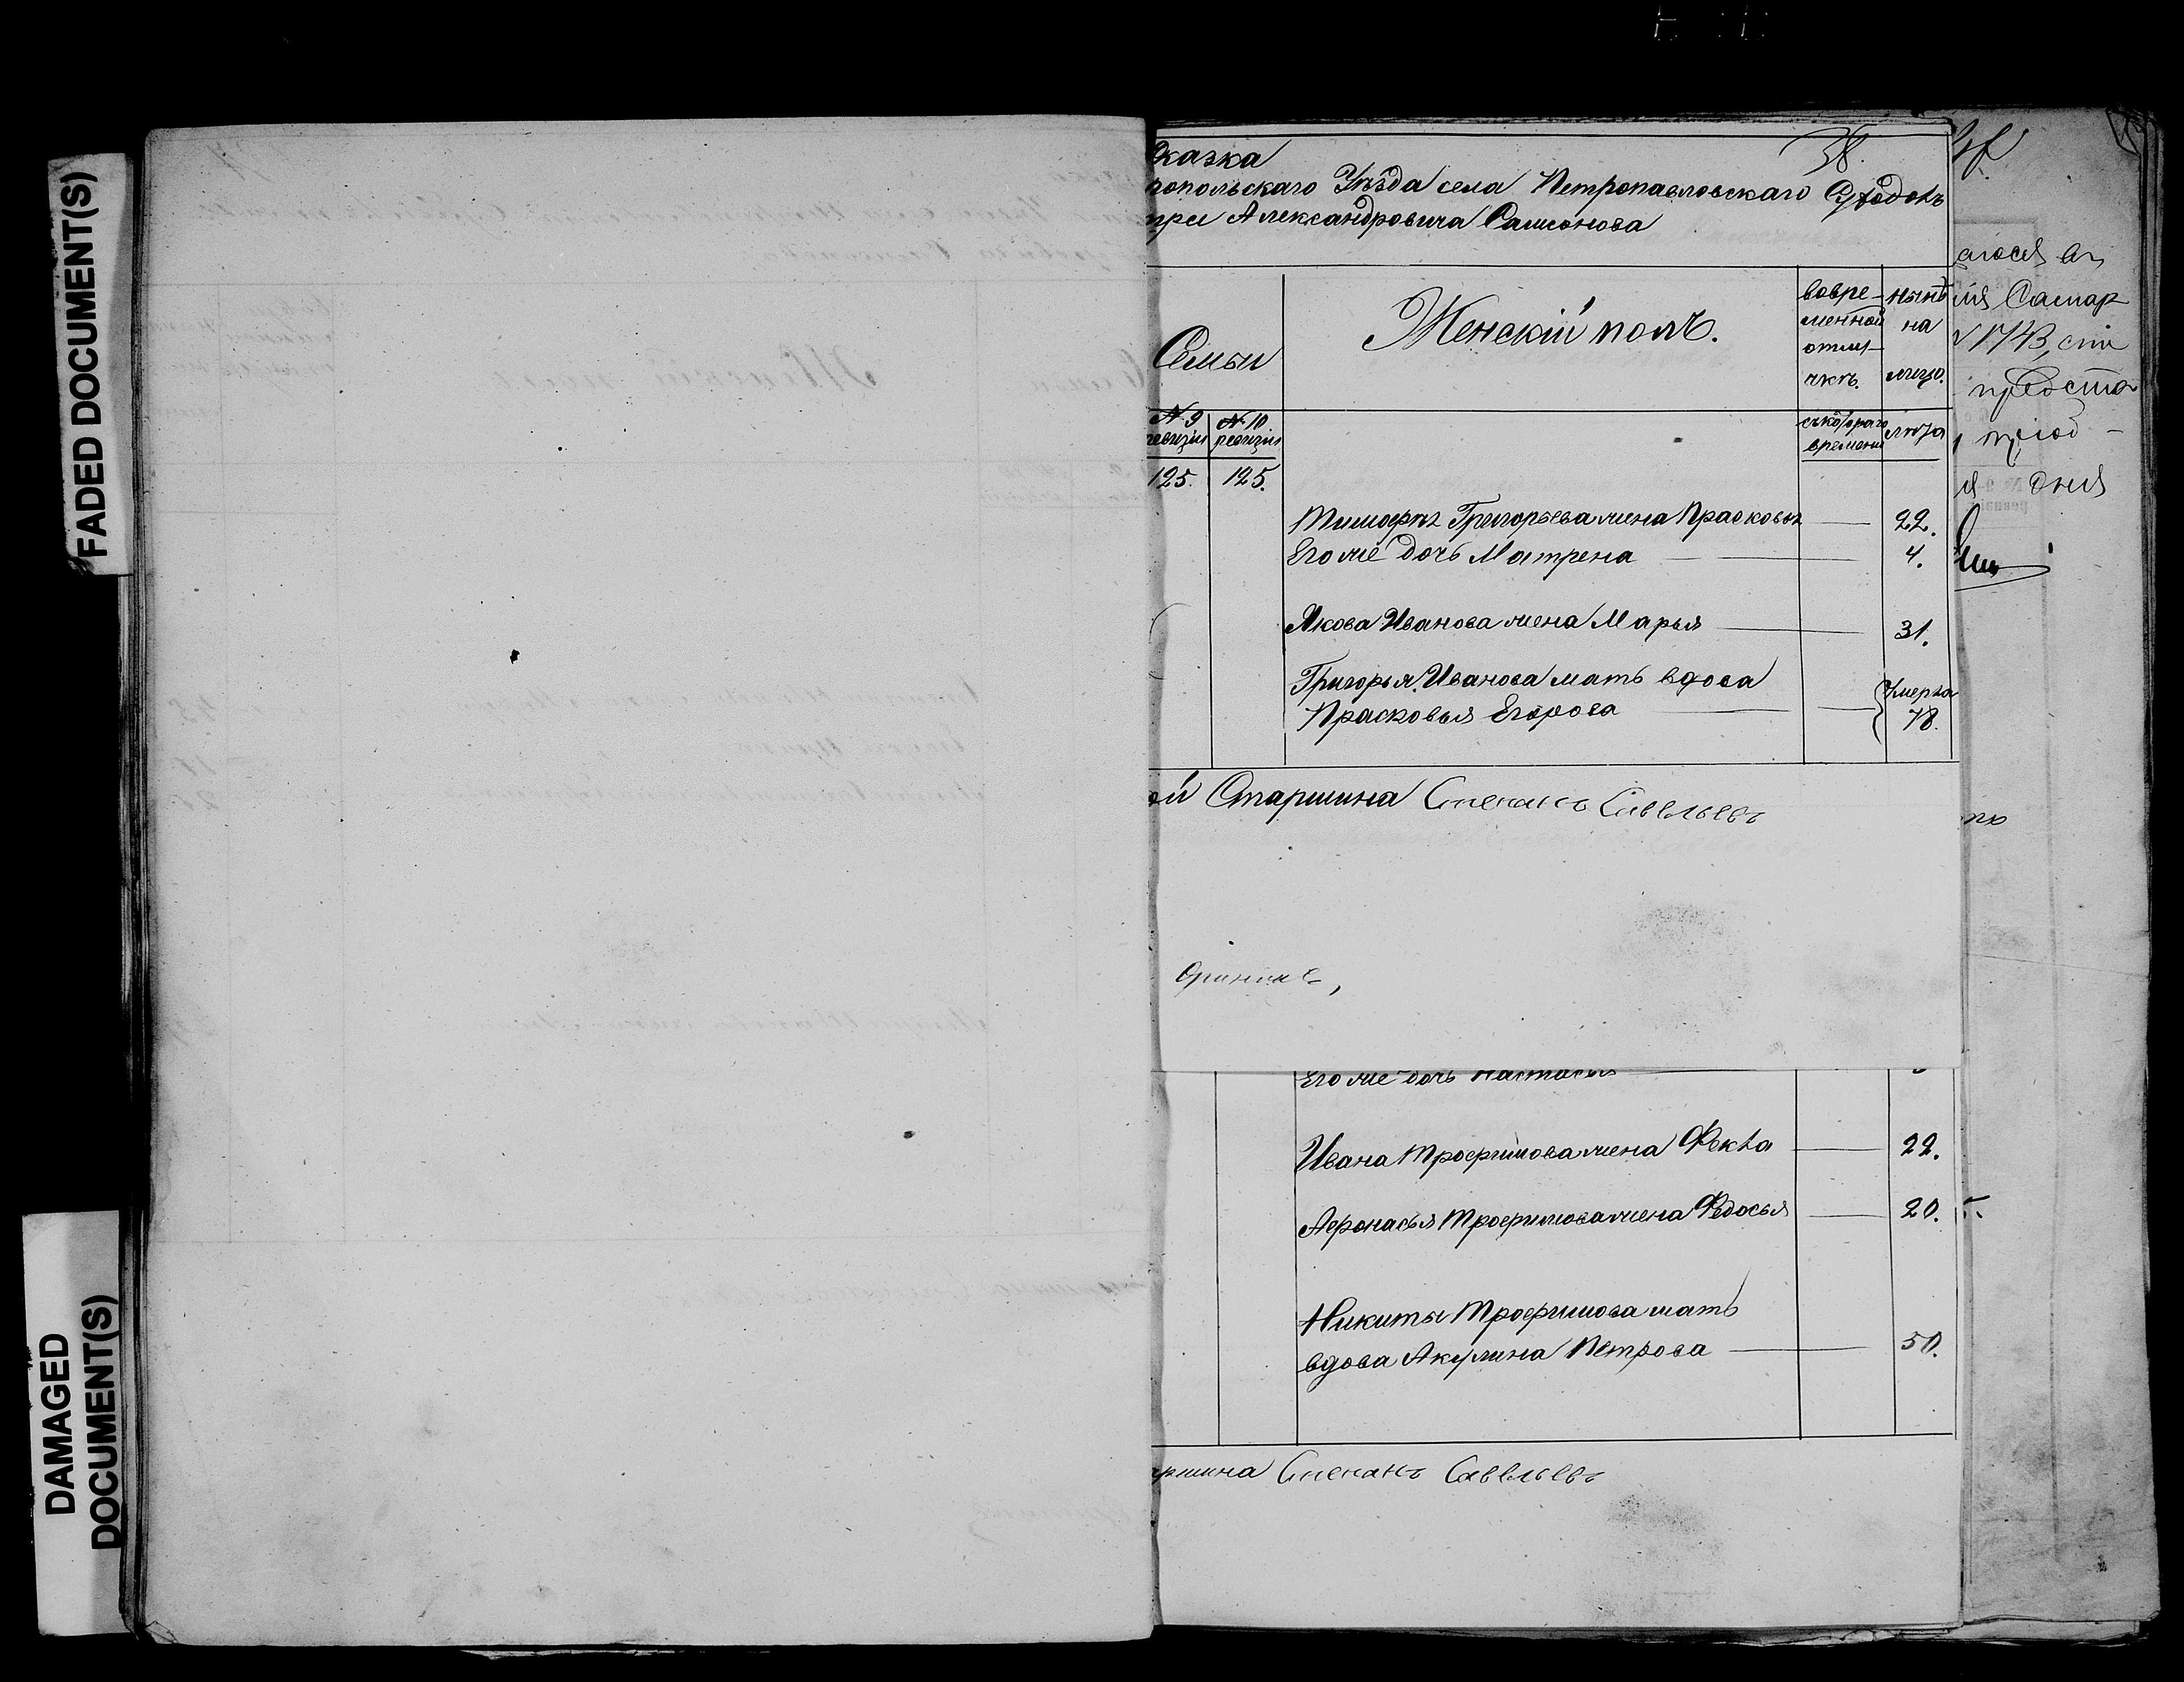 FADED DOCUMENT(S)
DAMAGED
DOCUMENT(S)
38.
сказка
польскаго Уѣзда села Петропавловскаго
Александровича Самсонова
Семьи
Женскій полъ.
вовре-
менной
отлу-
чкѣ.
нынѣ
на
лицо.
№ 9
ревизіи
№ 10
ревизіи
съкотораго
времени
лѣта
125. 125.
Тимофѣя Григорьева жена Прасковья 22.
Его же дочь Матрена 4.
Якова Иванова жена Марья 31.
Григорья Иванова мать вдова
Прасковья Егорова Умерла 78.
ой Старшина Степанъ Савельевъ
Его же дочь Настасья
Ивана Трофимова жена Фекла 22.
Афонасья Трофимова жена Федосья 20.
Никиты Трофимова мать
вдова Акулина Петрова 50.
ршина Степанъ Савельевъ
Самар
предста
дня